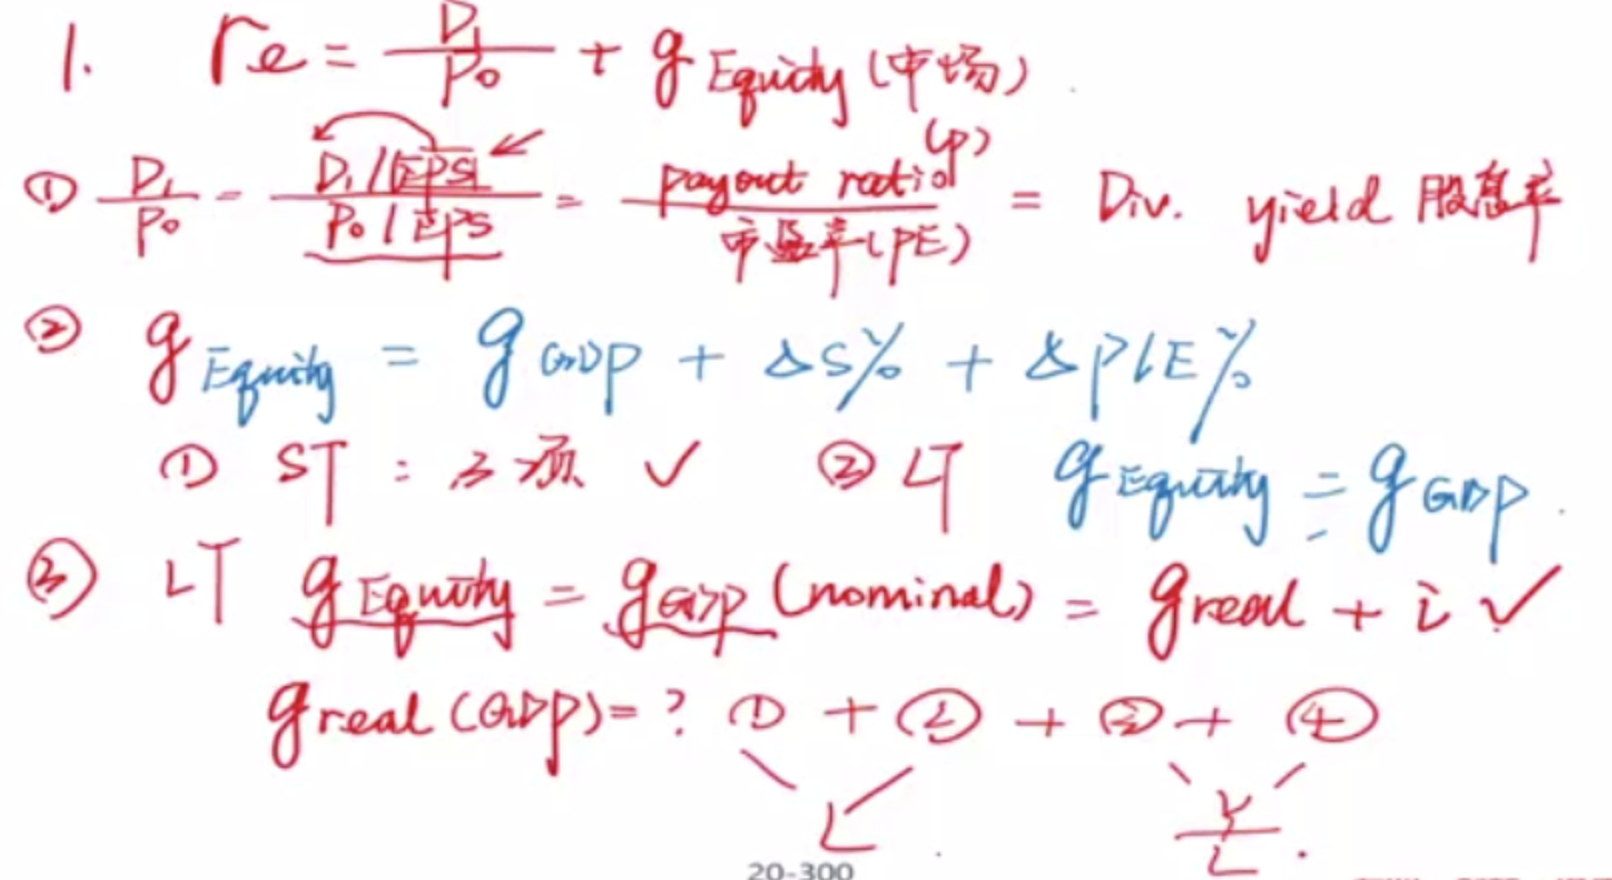 1. re = D₁/P₀ + g Equity (市场)
① D₁/P₀ = (D₁/EPS₁)/(P₀/EPS) = payout ratio (p)/市盈率(PE) = Div. yield 股息率
② g Equity = g GDP + ΔS% + ΔP/E%
① ST : 3项 ✓ ② LT g Equity = g GDP.
③ LT g Equity = g GDP (nominal) = g real + i ✓
g real (GDP) = ? ① + ② + ③ + ④
L Y/L.
20-300